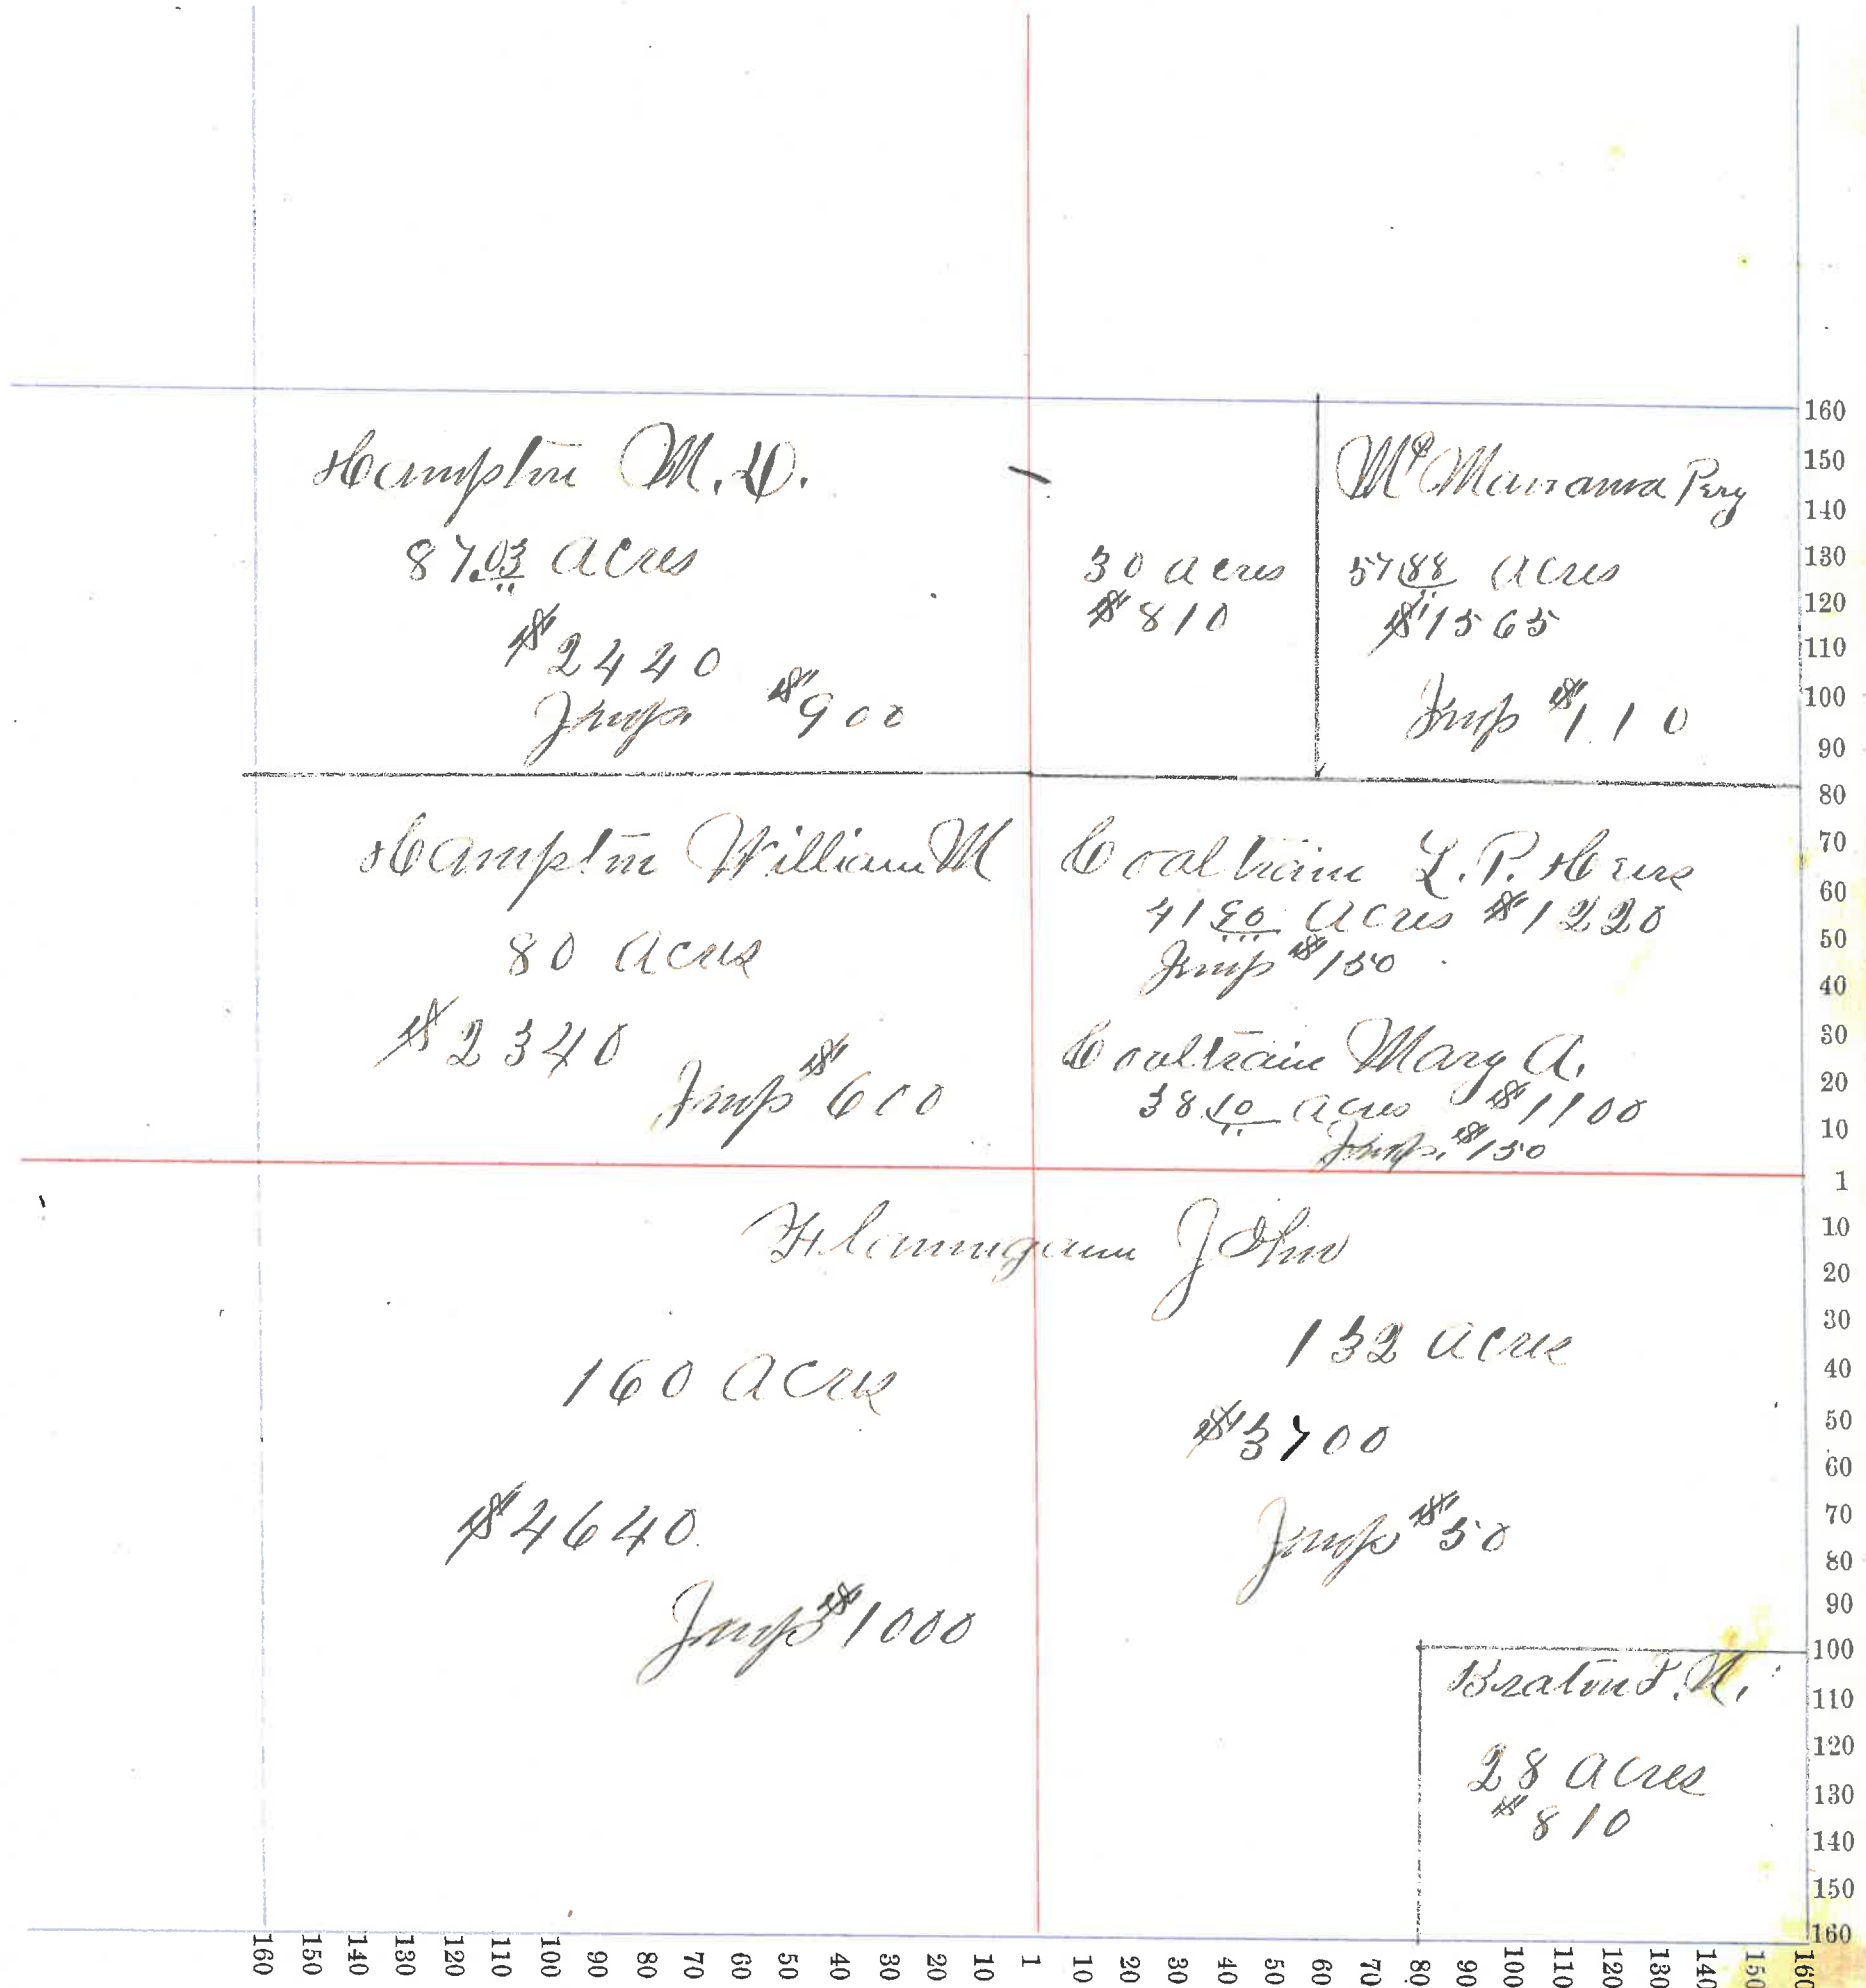 Hampton M. D.
87.03 Acres
$2440
Imp $900
30 acres
$810
Mc Manama Pery
57.88 Acres
$1565
Imp $110
Hampton William M
80 Acres
$2340
Imp $600
Coaltrain L. P. Heirs
41.90 Acres $1220
Imp $150
Coaltrain Mary A.
38.10 Acres $1100
Imp. $150
Flannigann John
160 Acres
$4640
Imp $1000
132 Acres
$3700
Imp $50
Braton F. N.
28 Acres
$810
160
150
140
130
120
110
100
90
80
70
60
50
40
30
20
10
1
10
20
30
40
50
60
70
80
90
100
110
120
130
140
150
160
160 150 140 130 120 110 100 90 80 70 60 50 40 30 20 10 1 10 20 30 40 50 60 70 80 90 100 110 120 130 140 150 160